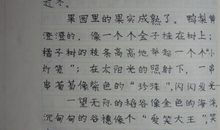 过不。
果园里的果实成熟了。鸭梨黄
澄澄的,像一个个金子挂在树上;
橘子树的枝条高高地举起一个个"小
灯笼";在太阳光的照射下,一串
串葡萄像紫色的"珍珠",闪闪发光
一望无际的稻谷像金色的海洋
沉甸甸的谷穗像个"爱笑大王",笑